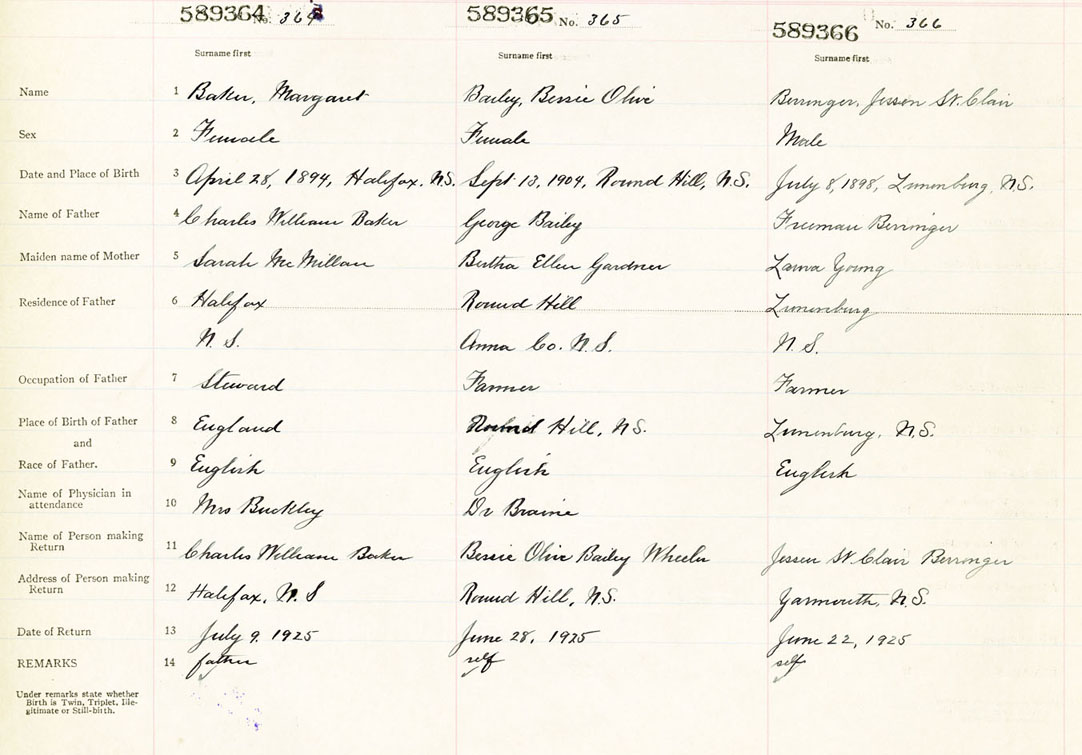 589364 No. 364 589365 No. 365 589366 No. 366
Surname first Surname first Surname first
Name 1 Baker, Margaret Bailey, Bessie Olive Berringer, Jessen St. Clair
Sex 2 Female Female Male
Date and Place of Birth 3 April 28, 1894, Halifax, N.S. Sept. 13, 1904, Round Hill, N.S. July 8, 1898, Lunenburg, N.S.
Name of Father 4 Charles William Baker George Bailey Freeman Berringer
Maiden name of Mother 5 Sarah McMillan Bertha Ellen Gardner Laura Young
Residence of Father 6 Halifax Round Hill Lunenburg
N. S. Anna Co. N.S. N.S.
Occupation of Father 7 Steward Farmer Farmer
Place of Birth of Father 8 England Round Hill, N.S. Lunenburg, N.S.
and
Race of Father. 9 English English English
Name of Physician in attendance 10 Mrs Buckley Dr Braine
Name of Person making Return 11 Charles William Baker Bessie Olive Bailey Wheeler Jessen St. Clair Berringer
Address of Person making Return 12 Halifax, N.S Round Hill, N.S. Yarmouth, N.S.
Date of Return 13 July 9, 1925 June 28, 1925 June 22, 1925
REMARKS 14 father self self
Under remarks state whether
Birth is Twin, Triplet, Ille-
gitimate or Still-birth.